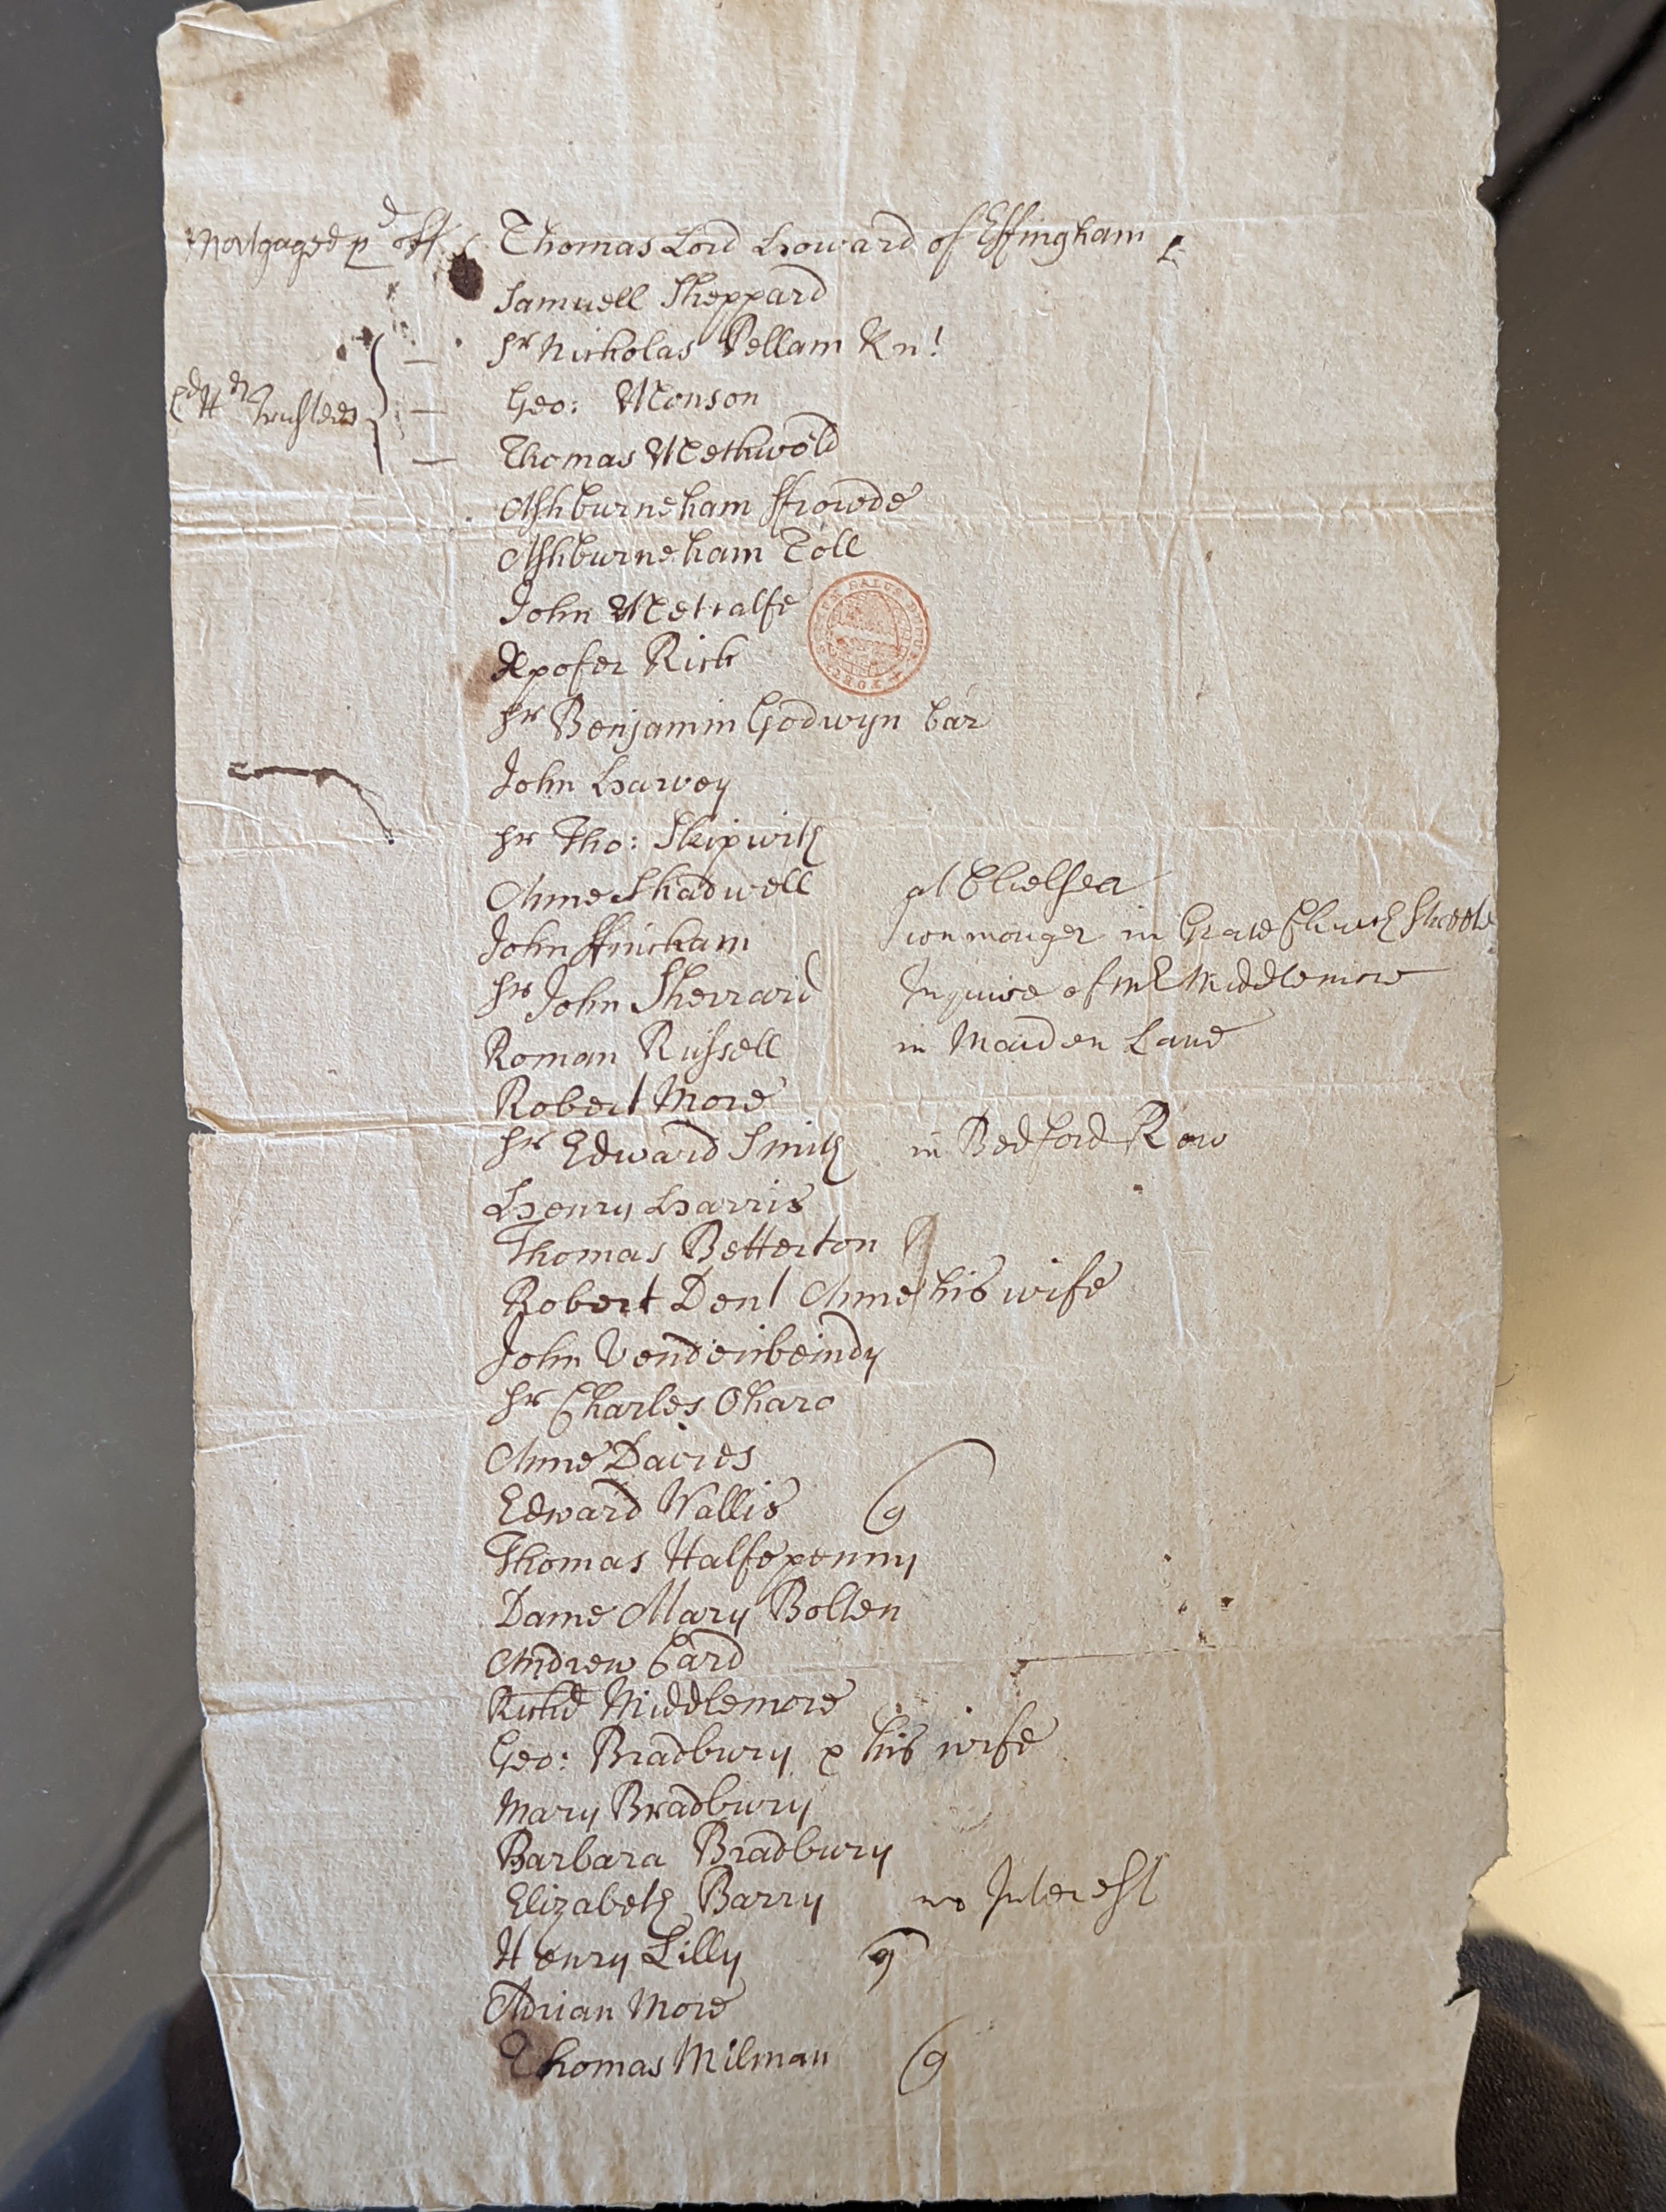 Mortgaged pd off Thomas Lord Howard of Effingham
Samuell Sheppard
Sr Nicholas Pellam Knt
Geo: Monson
pd Trustees
Thomas Methwold
Ashburneham ffrowde
Ashburneham Toll
John Metcalfe
Xpofer Rich
Sr Benjamin Godwyn bar
John Harvey
Sr Tho: Skipwith
Anne Shadwell at Chelsea
John ffincham Ironmonger in Grace Church Streete
Sr John Sherrard Inquire of Mr Middlemore
Roman Russell in Maiden Lane
Robert More
Sr Edward Smith in Bedford Row
Henry Harris
Thomas Betterton
Robert Dent Anne his wife
John
Sr Charles Oharo
Anne Davies
Edward Wallis
Thomas Halfepenny
Dame Mary Bolten
Andrew Card
Richd Middlemore
Geo: Bradbury & his wife
Mary Bradbury
Barbara Bradbury
Elizabeth Barry no Interest
Henry Lilly
Adrian More
Thomas Milman